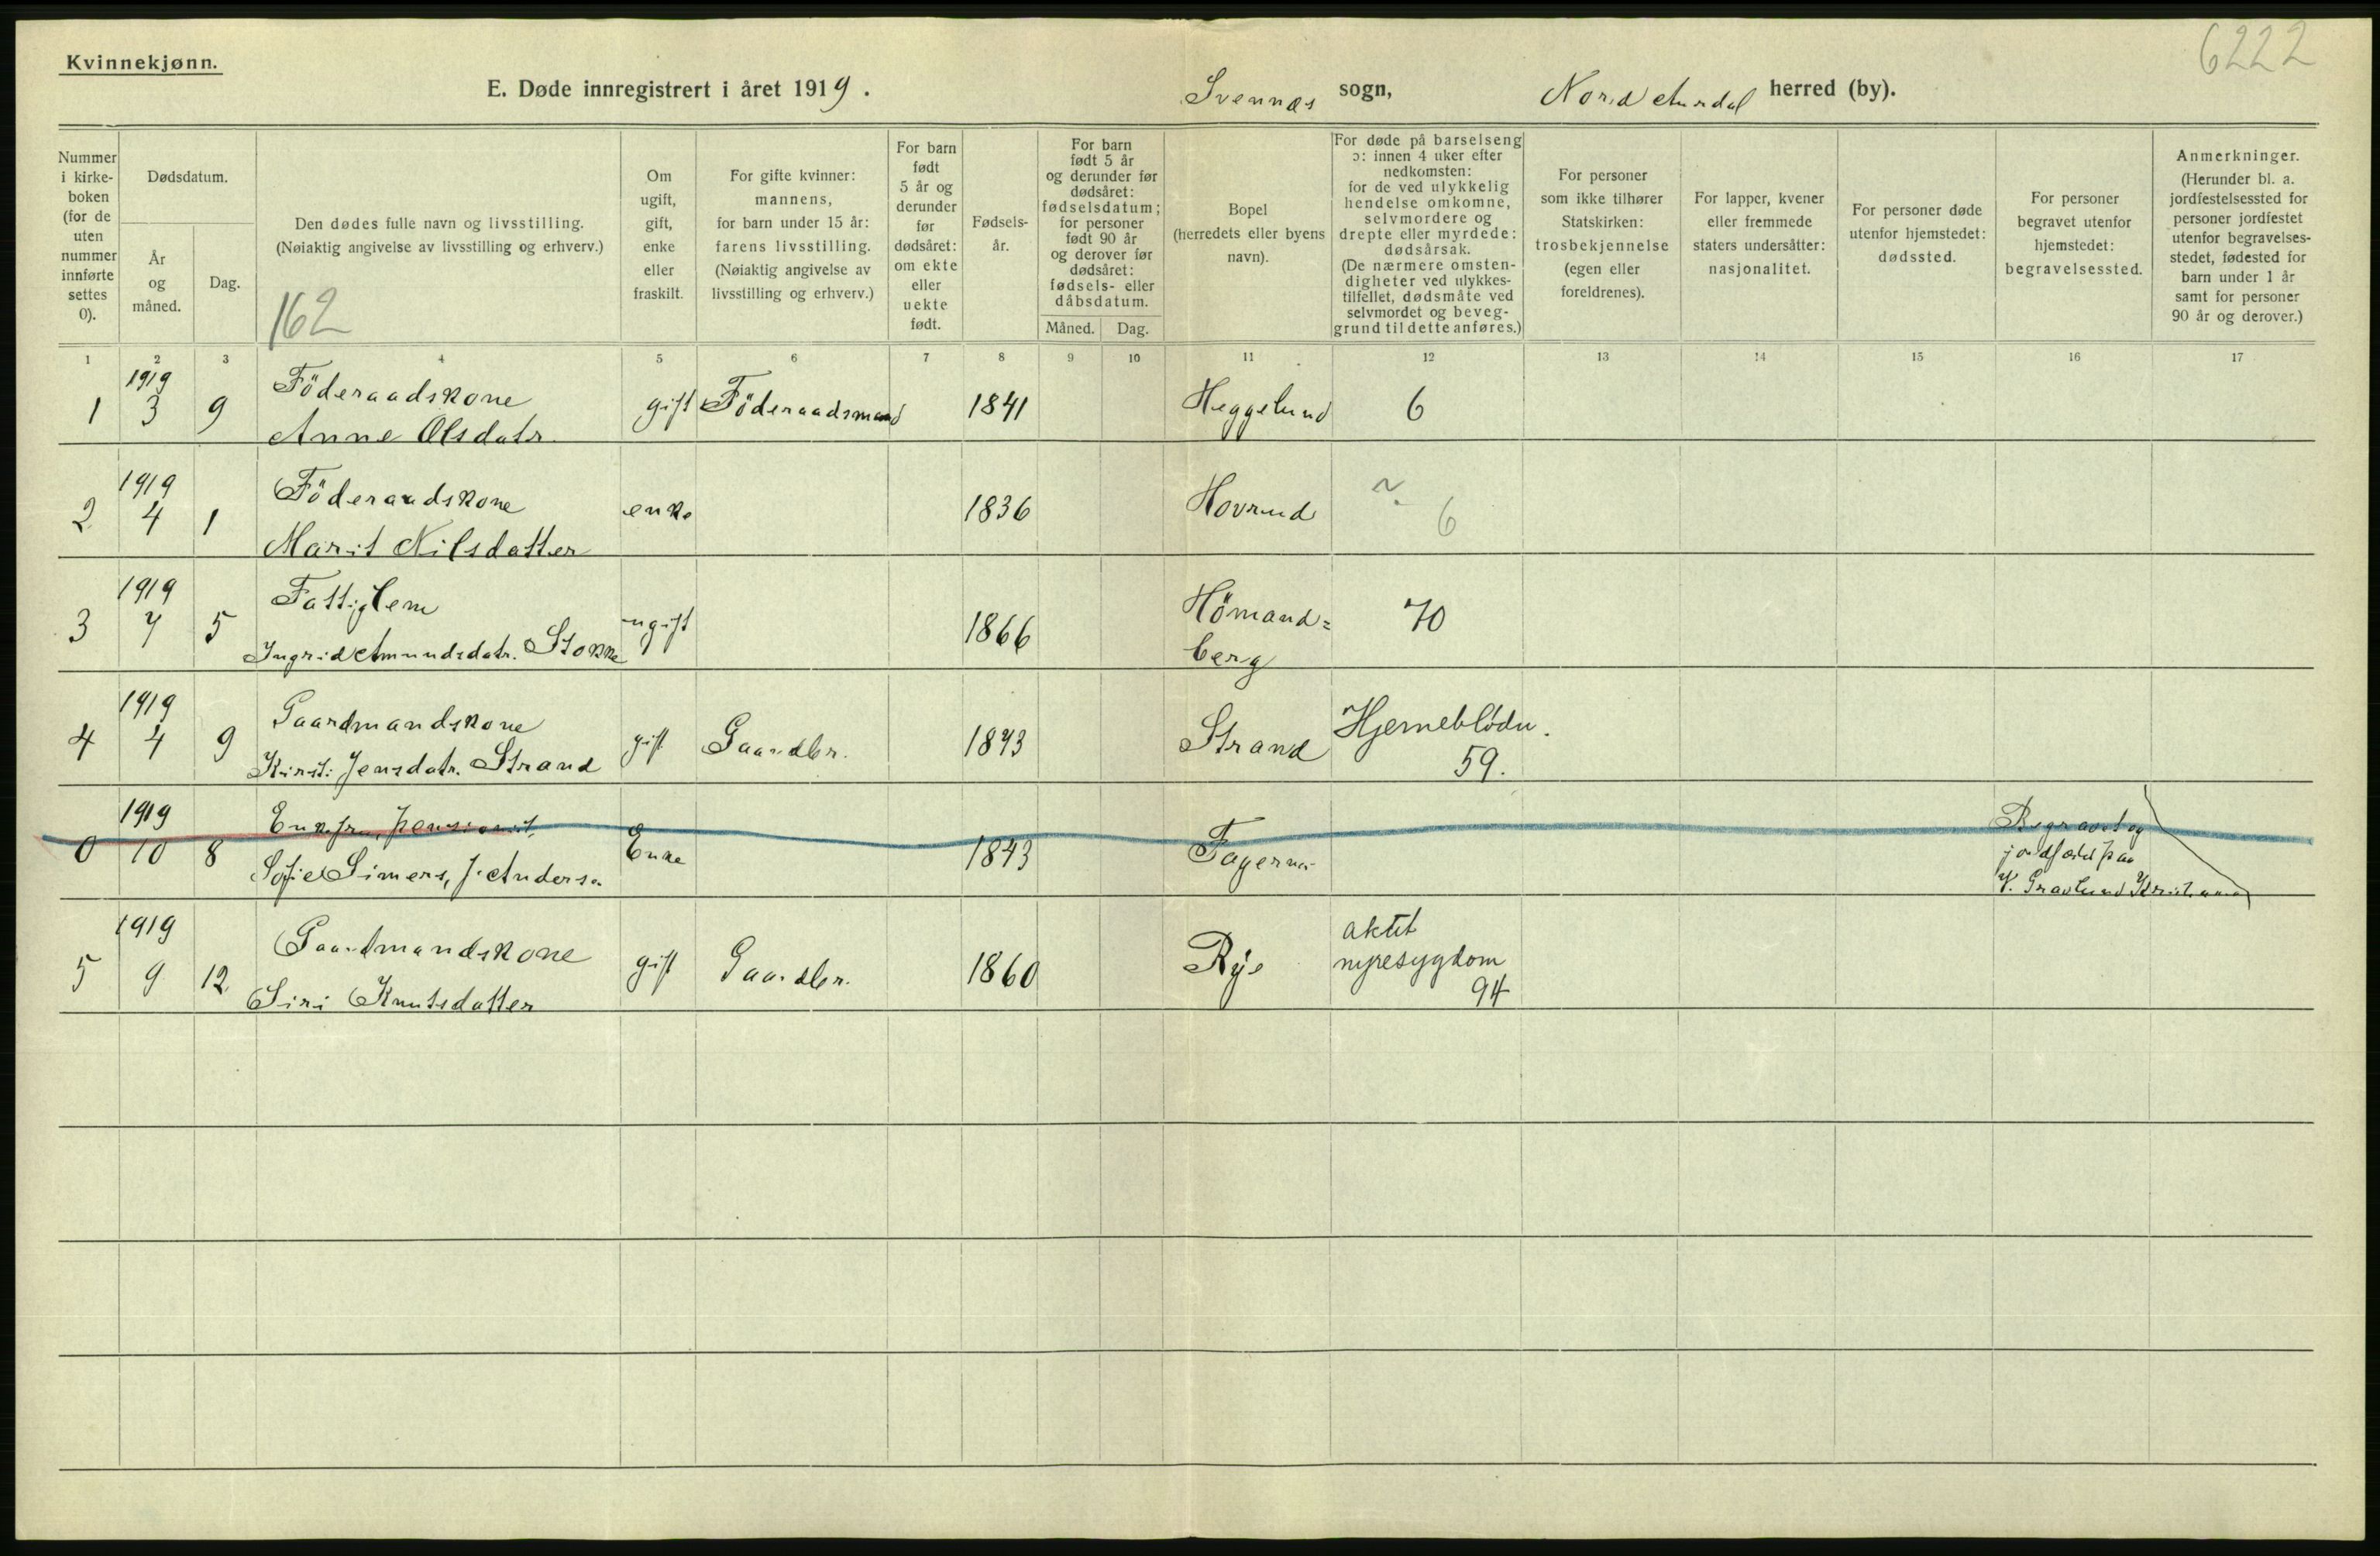 6222
Kvinnekjønn.
E. Døde innregistrert i året 1919. Svennæs sogn, Nord Aurdal herred (by).
Nummer i kirke-boken (for de uten nummer innførte settes 0).
Dødsdatum.
År og måned.
Dag.
Den dødes fulle navn og livsstilling.
(Nøiaktig angivelse av livsstilling og erhverv.)
162
Om ugift, gift, enke eller fraskilt.
For gifte kvinner: mannens, for barn under 15 år: farens livsstilling. (Nøiaktig angivelse av livsstilling og erhverv.)
For barn født 5 år og derunder før dødsåret: om ekte eller uekte født.
Fødsels-år.
For barn født 5 år og derunder før dødsåret: fødselsdatum; for personer født 90 år og derover før dødsåret: fødsels- eller dåbsdatum.
Måned. Dag.
Bopel (herredets eller byens navn).
For døde på barselseng ɔ: innen 4 uker efter nedkomsten: for de ved ulykkelig hendelse omkomne, selvmordere og drepte eller myrdede: dødsårsak. (De nærmere omsten-digheter ved ulykkes-tilfellet, dødsmåte ved selvmordet og beveg-grund til dette anføres.)
For personer som ikke tilhører Statskirken: trosbekjennelse (egen eller foreldrenes).
For lapper, kvener eller fremmede staters undersåtter: nasjonalitet.
For personer døde utenfor hjemstedet: dødssted.
For personer begravet utenfor hjemstedet: begravelsessted.
Anmerkninger. (Herunder bl. a. jordfestelsessted for personer jordfestet utenfor begravelses-stedet, fødested for barn under 1 år samt for personer 90 år og derover.)
1 2 3 4 5 6 7 8 9 10 11 12 13 14 15 16 17
1919
1 3 9 Föderaadskone gift Föderaadsmand 1841 Heggelund 6
Anne Olsdatr.
1919
2 4 1 Föderaadskone enke 1836 Hovrud ? 6
Marit Nilsdatter
1919
3 7 5 Fattiglem ugift 1866 Hömand= 70
Ingrid Amundsdatr. Stokke berg
1919
4 4 9 Gaardmandskone gift Gaardbr. 1843 Strand Hjerneblödn.
Kirsti Jensdatr. Strand 59.
1919
0 10 8 Enkefru, pensionist, Enke 1843 Fagernæs Begravet og
Sofie Simers, f. Anderse jordfæstet paa
V. Gravlund Kristiania
1919
5 9 12 Gaardmandskone gift Gaardbr. 1860 Rye akut
Siri Knutsdatter nyresygdom
94